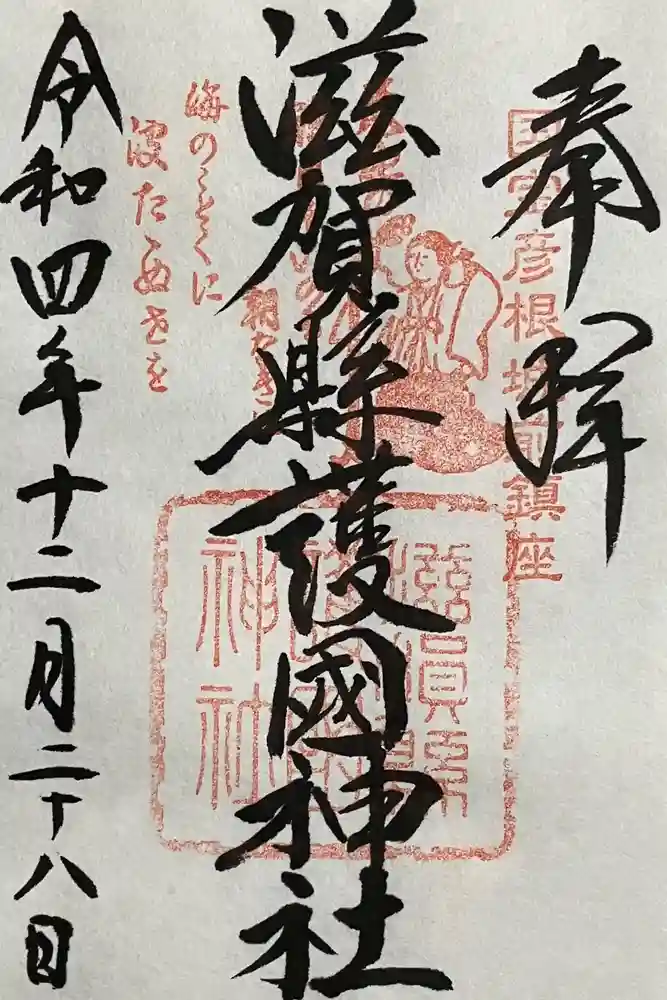 奉拜
国宝彦根城前鎮座
滋賀縣護國神社
滋賀縣護國神社
海のことくに
波たゝぬ世を
令和四年十二月二十八日